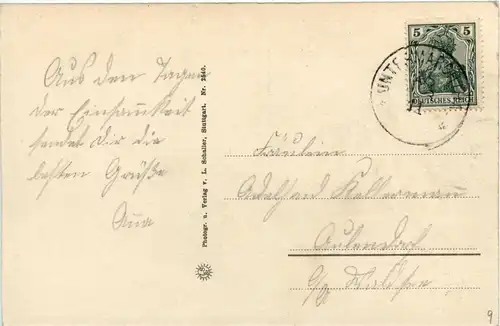 Aus den Tagen
der Einsamkeit
sendet Dir die
besten Grüße
Photogr. u. Verlag v. L. Schaller, Stuttgart. Nr. 2540.
5 5
DEUTSCHES REICH
Fräulein
Kellermann
Aulendorf